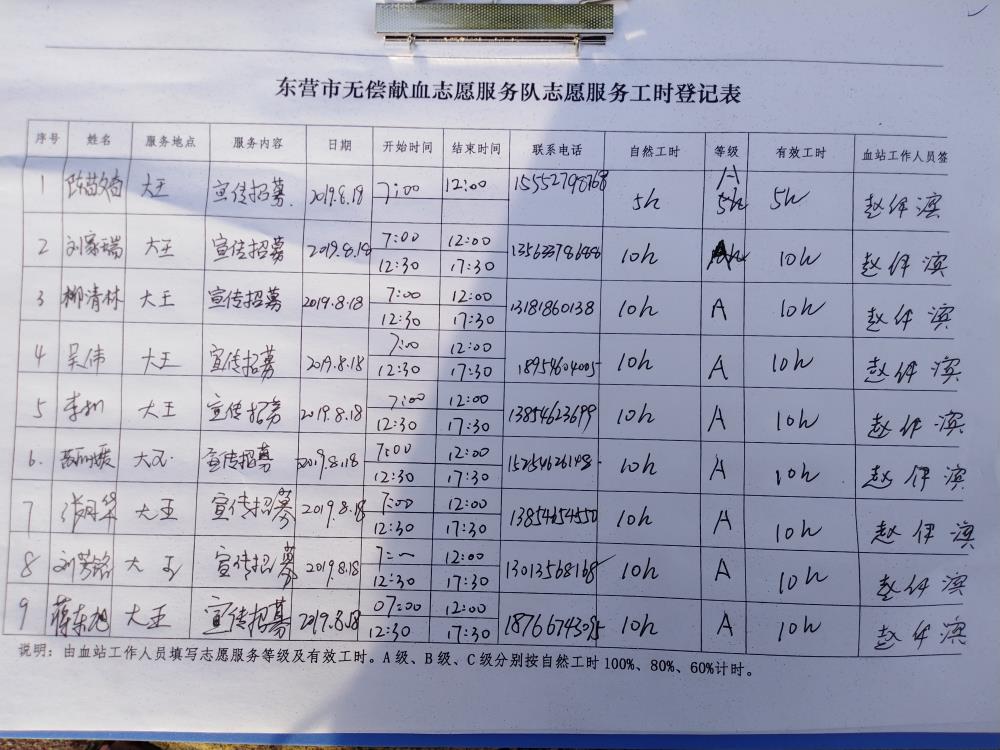 东营市无偿献血志愿服务队志愿服务工时登记表
序号 姓名 服务地点 服务内容 日期 开始时间 结束时间 联系电话 自然工时 等级 有效工时 血站工作人员签
1 大王 宣传招募 2019.8.18 7:00 12:00 15552798768 5h A 5h 5h 赵伴滨
2 刘家瑞 大王 宣传招募 2019.8.18 7:00 12:00 10h 10h 赵伴滨
12:30 17:30
3 柳清林 大王 宣传招募 2019.8.18 7:00 12:00 13181860138 10h A 10h 赵伴滨
12:30 17:30
4 吴伟 大王 宣传招募 2019.8.18 7:00 12:00 18954604005 10h A 10h 赵伴滨
12:30 17:30
5 大王 宣传招募 2019.8.18 7:00 12:00 13854623699 10h A 10h 赵伴滨
12:30 17:30
6. 大王 宣传招募 2019.8.18 7:00 12:00 15254626148 10h A 10h 赵伴滨
12:30 17:30
7 张月华 大王 宣传招募 2019.8.18 7:00 12:00 13854654550 10h A 10h 赵伴滨
12:30 17:30
8 刘芳铭 大王 宣传招募 2019.8.18 7:— 12:00 13013568168 10h A 10h 赵伴滨
12:30 17:30
9 蒋东旭 大王 宣传招募 2019.8.18 07:00 12:00 18766743095 10h A 10h 赵伴滨
12:30 17:30
说明：由血站工作人员填写志愿服务等级及有效工时。A级、B级、C级分别按自然工时100%、80%、60%计时。